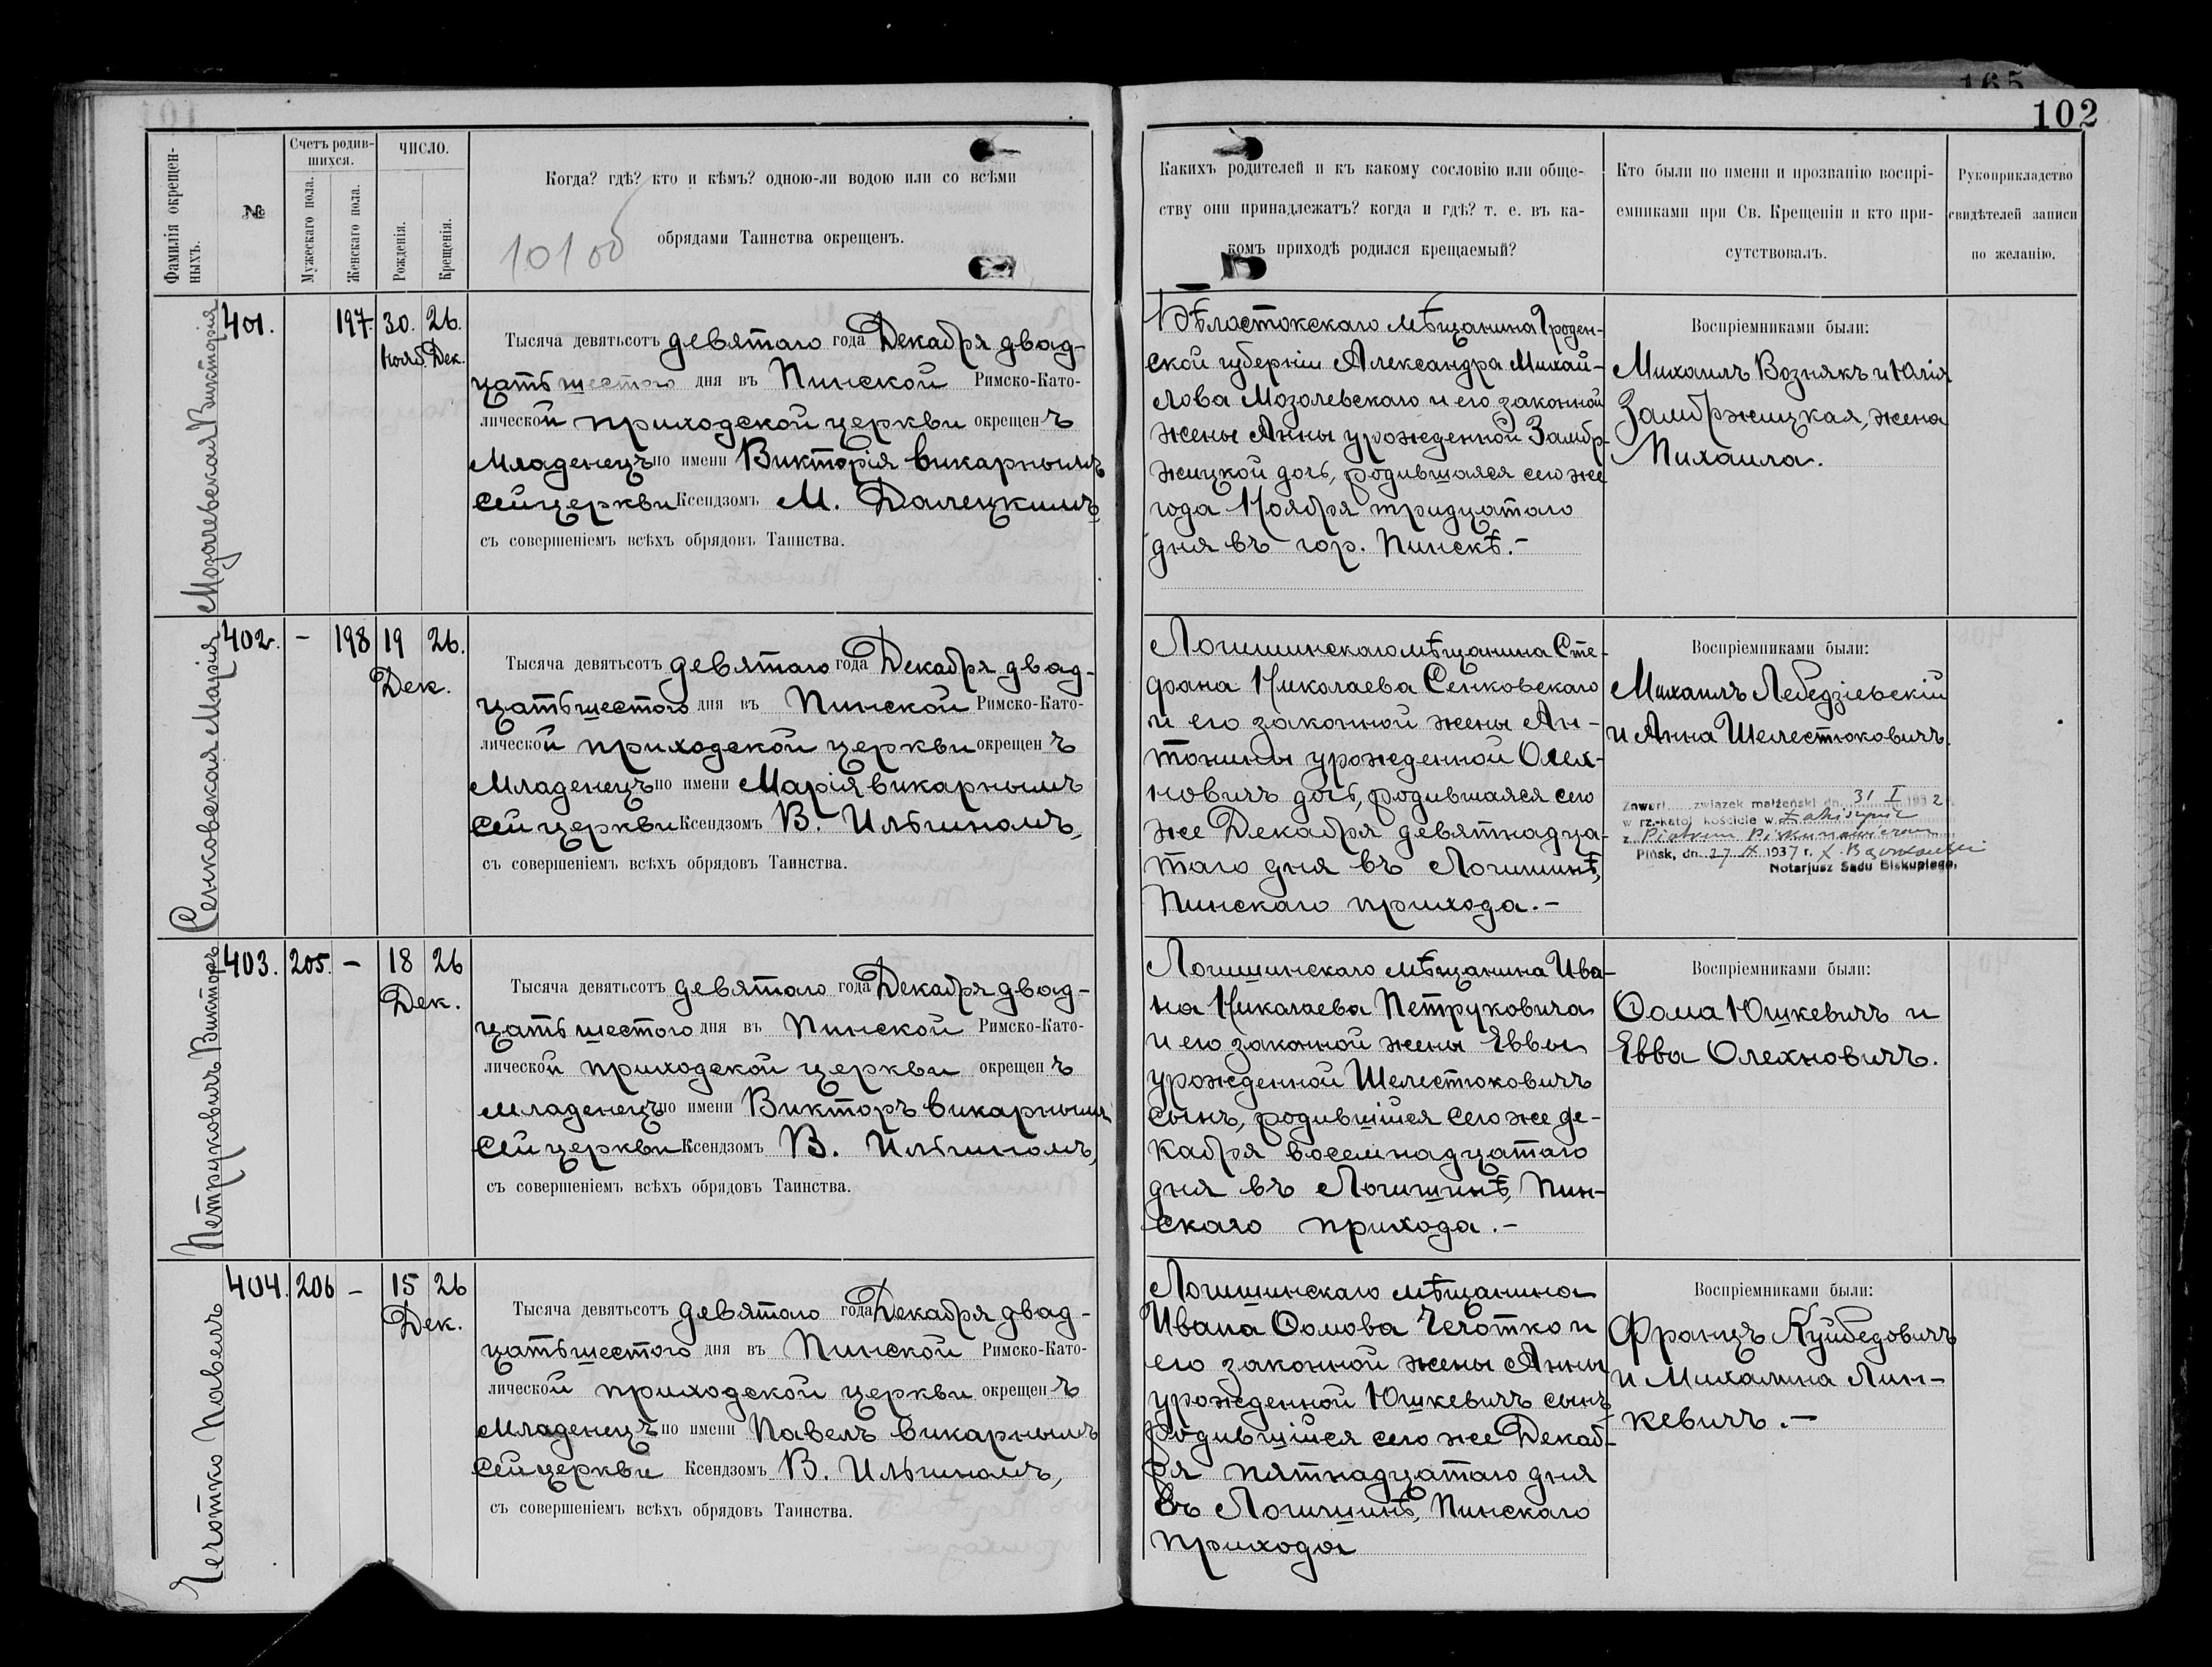 102
Фамилія окрещен-
ныхъ.
№
Счетъ родив-
шихся.
Мужескаго пола.
Женскаго пола.
ЧИСЛО.
Рожденія.
Крещенія.
Когда? гдѣ? кто и кѣмъ? одною-ли водою или со всѣми
обрядами Таинства окрещенъ.
Какихъ родителей и къ какому сословію или обще-
ству они принадлежатъ? когда и гдѣ? т. е. въ ка-
комъ приходѣ родился крещаемый?
Кто были по имени и прозванію воспрі-
емниками при Св. Крещеніи и кто при-
сутствовалъ.
Рукоприкладство
свидѣтелей записи
по желанію.
Мозолевская Викторія
401.
197.
30.
Нояб.
26.
Дек.
Тысяча девятьсотъ девятаго года Декабря двад-
цать шестого дня въ Пинской Римско-Като-
лической приходской церкви окрещенъ
Младенецъ по имени Викторія викарнымъ
сей церкви Ксендзомъ М. Далецкимъ,
съ совершеніемъ всѣхъ обрядовъ Таинства.
Бѣлостокскаго мѣщанина Гроден-
ской губерніи Александра Михай-
лова Мозолевскаго и его законной
жены Анны урожденной Замбр-
жицкой дочь, родившаяся сего же
года Ноября тридцатаго
дня въ гор. Пинскѣ.-
Воспріемниками были:
Михаилъ Вознякъ и Юлія
Замбржицкая, жена
Михаила.
Сенковская Марія
402.
-
198
19
26.
Дек.
Тысяча девятьсотъ девятаго года Декабря двад-
цать шестого дня въ Пинской Римско-Като-
лической приходской церкви окрещенъ
Младенецъ по имени Марія викарнымъ
сей церкви Ксендзомъ В. Ильгиномъ,
съ совершеніемъ всѣхъ обрядовъ Таинства.
Логишинскаго мѣщанина Сте-
фана Николаева Сенковскаго
и его законной жены Ан-
тонины урожденной Олех-
новичъ дочь, родившаяся сего
же Декабря девятнадца-
таго дня въ Логишинѣ,
Пинскаго прихода.-
Воспріемниками были:
Михаилъ Лебедзіевскій
и Анна Шелестюковичъ.
Zawarł związek małżeński dn. 31 I 1932
w rz.-katol. kościele w Łahiszynie
z Piotrem Piskunowiczem
Pińsk, dn. 27 IX 1937 r. X.
Notarjusz Sądu Biskupiego.
Петруковичъ Викторъ
403.
205.
-
18
26
Дек.
Тысяча девятьсотъ девятаго года Декабря двад-
цать шестого дня въ Пинской Римско-Като-
лической приходской церкви окрещенъ
Младенецъ по имени Викторъ викарнымъ
сей церкви Ксендзомъ В. Ильгиномъ,
съ совершеніемъ всѣхъ обрядовъ Таинства.
Логишинскаго мѣщанина Ива-
на Николаева Петруковича
и его законной жены Еввы
урожденной Шелестюковичъ
сынъ, родившійся сего же де-
кабря восемнадцатаго
дня въ Логишинѣ, Пин-
скаго прихода.-
Воспріемниками были:
Ѳома Юшкевичъ и
Евва Олехновичъ.
Чечотко Павелъ
404.
206
-
15
26
Дек.
Тысяча девятьсотъ девятаго года Декабря двад-
цать шестого дня въ Пинской Римско-Като-
лической приходской церкви окрещенъ
Младенецъ по имени Павелъ викарнымъ
сей церкви Ксендзомъ В. Ильгиномъ,
съ совершеніемъ всѣхъ обрядовъ Таинства.
Логишинскаго мѣщанина
Ивана Ѳомова Чечотко и
его законной жены Анны
урожденной Юшкевичъ сынъ
родившійся сего же Декаб-
ря пятнадцатаго дня
въ Логишинѣ, Пинскаго
прихода
Воспріемниками были:
Францъ Куйбедовичъ
и Михалина Лин-
кевичъ.-